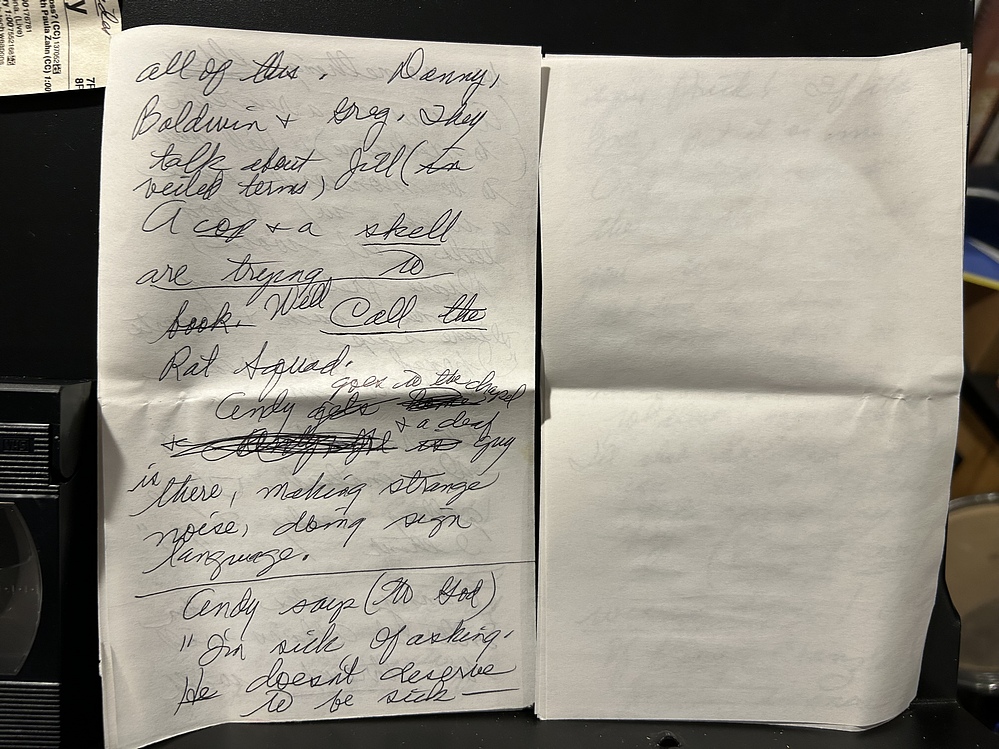 all of this. Danny,
Baldwin + Greg. They
talk about Jill (in
veiled terms)
A cop + a skell
are trying to
book. Will Call the
Rat Squad.
goes to the chapel
Andy gets home
+ a deaf
guy
is there, making strange
noise, doing sign
language.
Andy says (to God)
"I'm sick of asking.
He doesn't deserve
to be sick —
with Paula Zahn (CC)